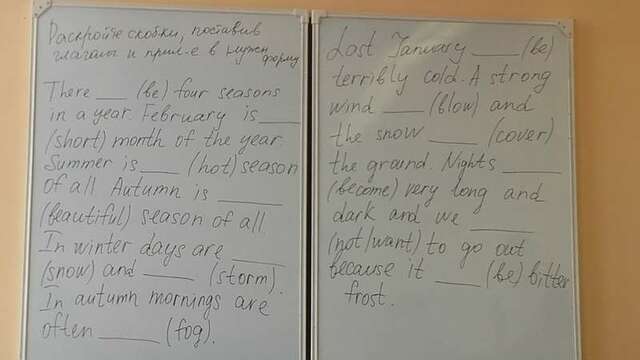 Раскройте скобки, поставив
глаголы и прил-е в нужн
форму
There ___ (be) four seasons
in a year. February is ___
(short) month of the year.
Summer is ___ (hot) season
of all Autumn is ___
(beautiful) season of all
In winter days are ___
(snow) and ___ (storm).
In autumn mornings are
often ___ (fog).
Last January ___ (be)
terribly cold. A strong
wind ___ (blow) and
the snow ___ (cover)
the ground. Nights ___
(become) very long and
dark and we ___
(not/want) to go out
because it ___ (be) bitter
frost.